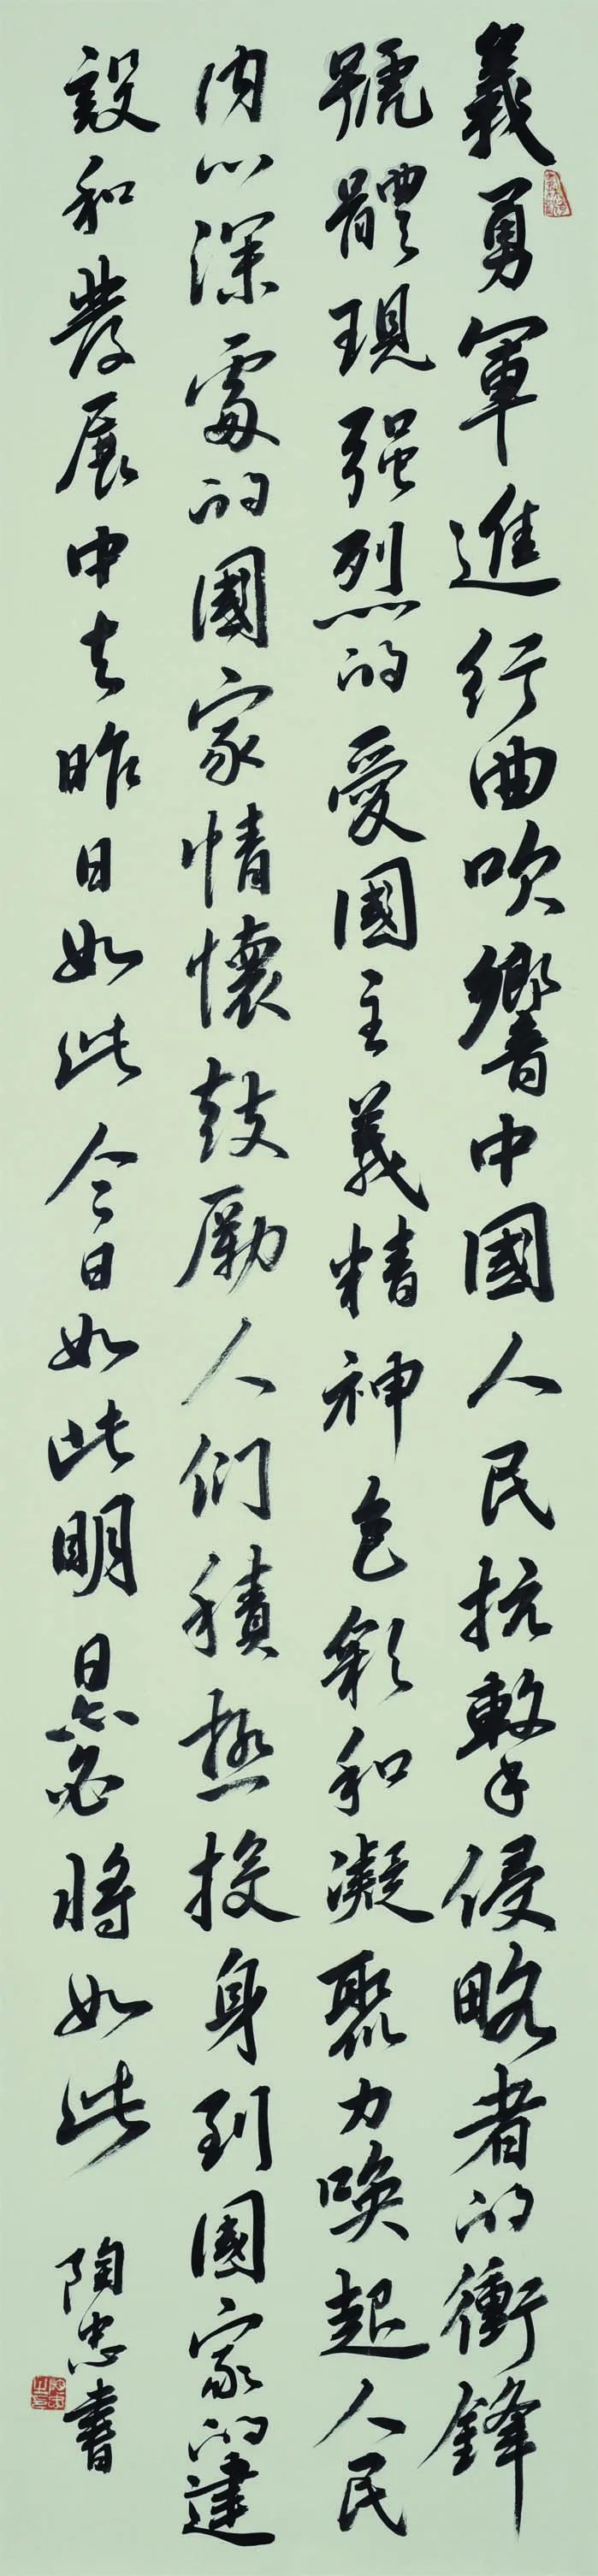 義勇軍進行曲吹響中國人民抗擊侵略者的衝鋒
號體現强烈的愛國主義精神色彩和凝聚力喚起人民
内心深處的國家情懷鼓勵人們積極投身到國家的建
設和發展中去昨日如此今日如此明日忘必將如此
陶忠書